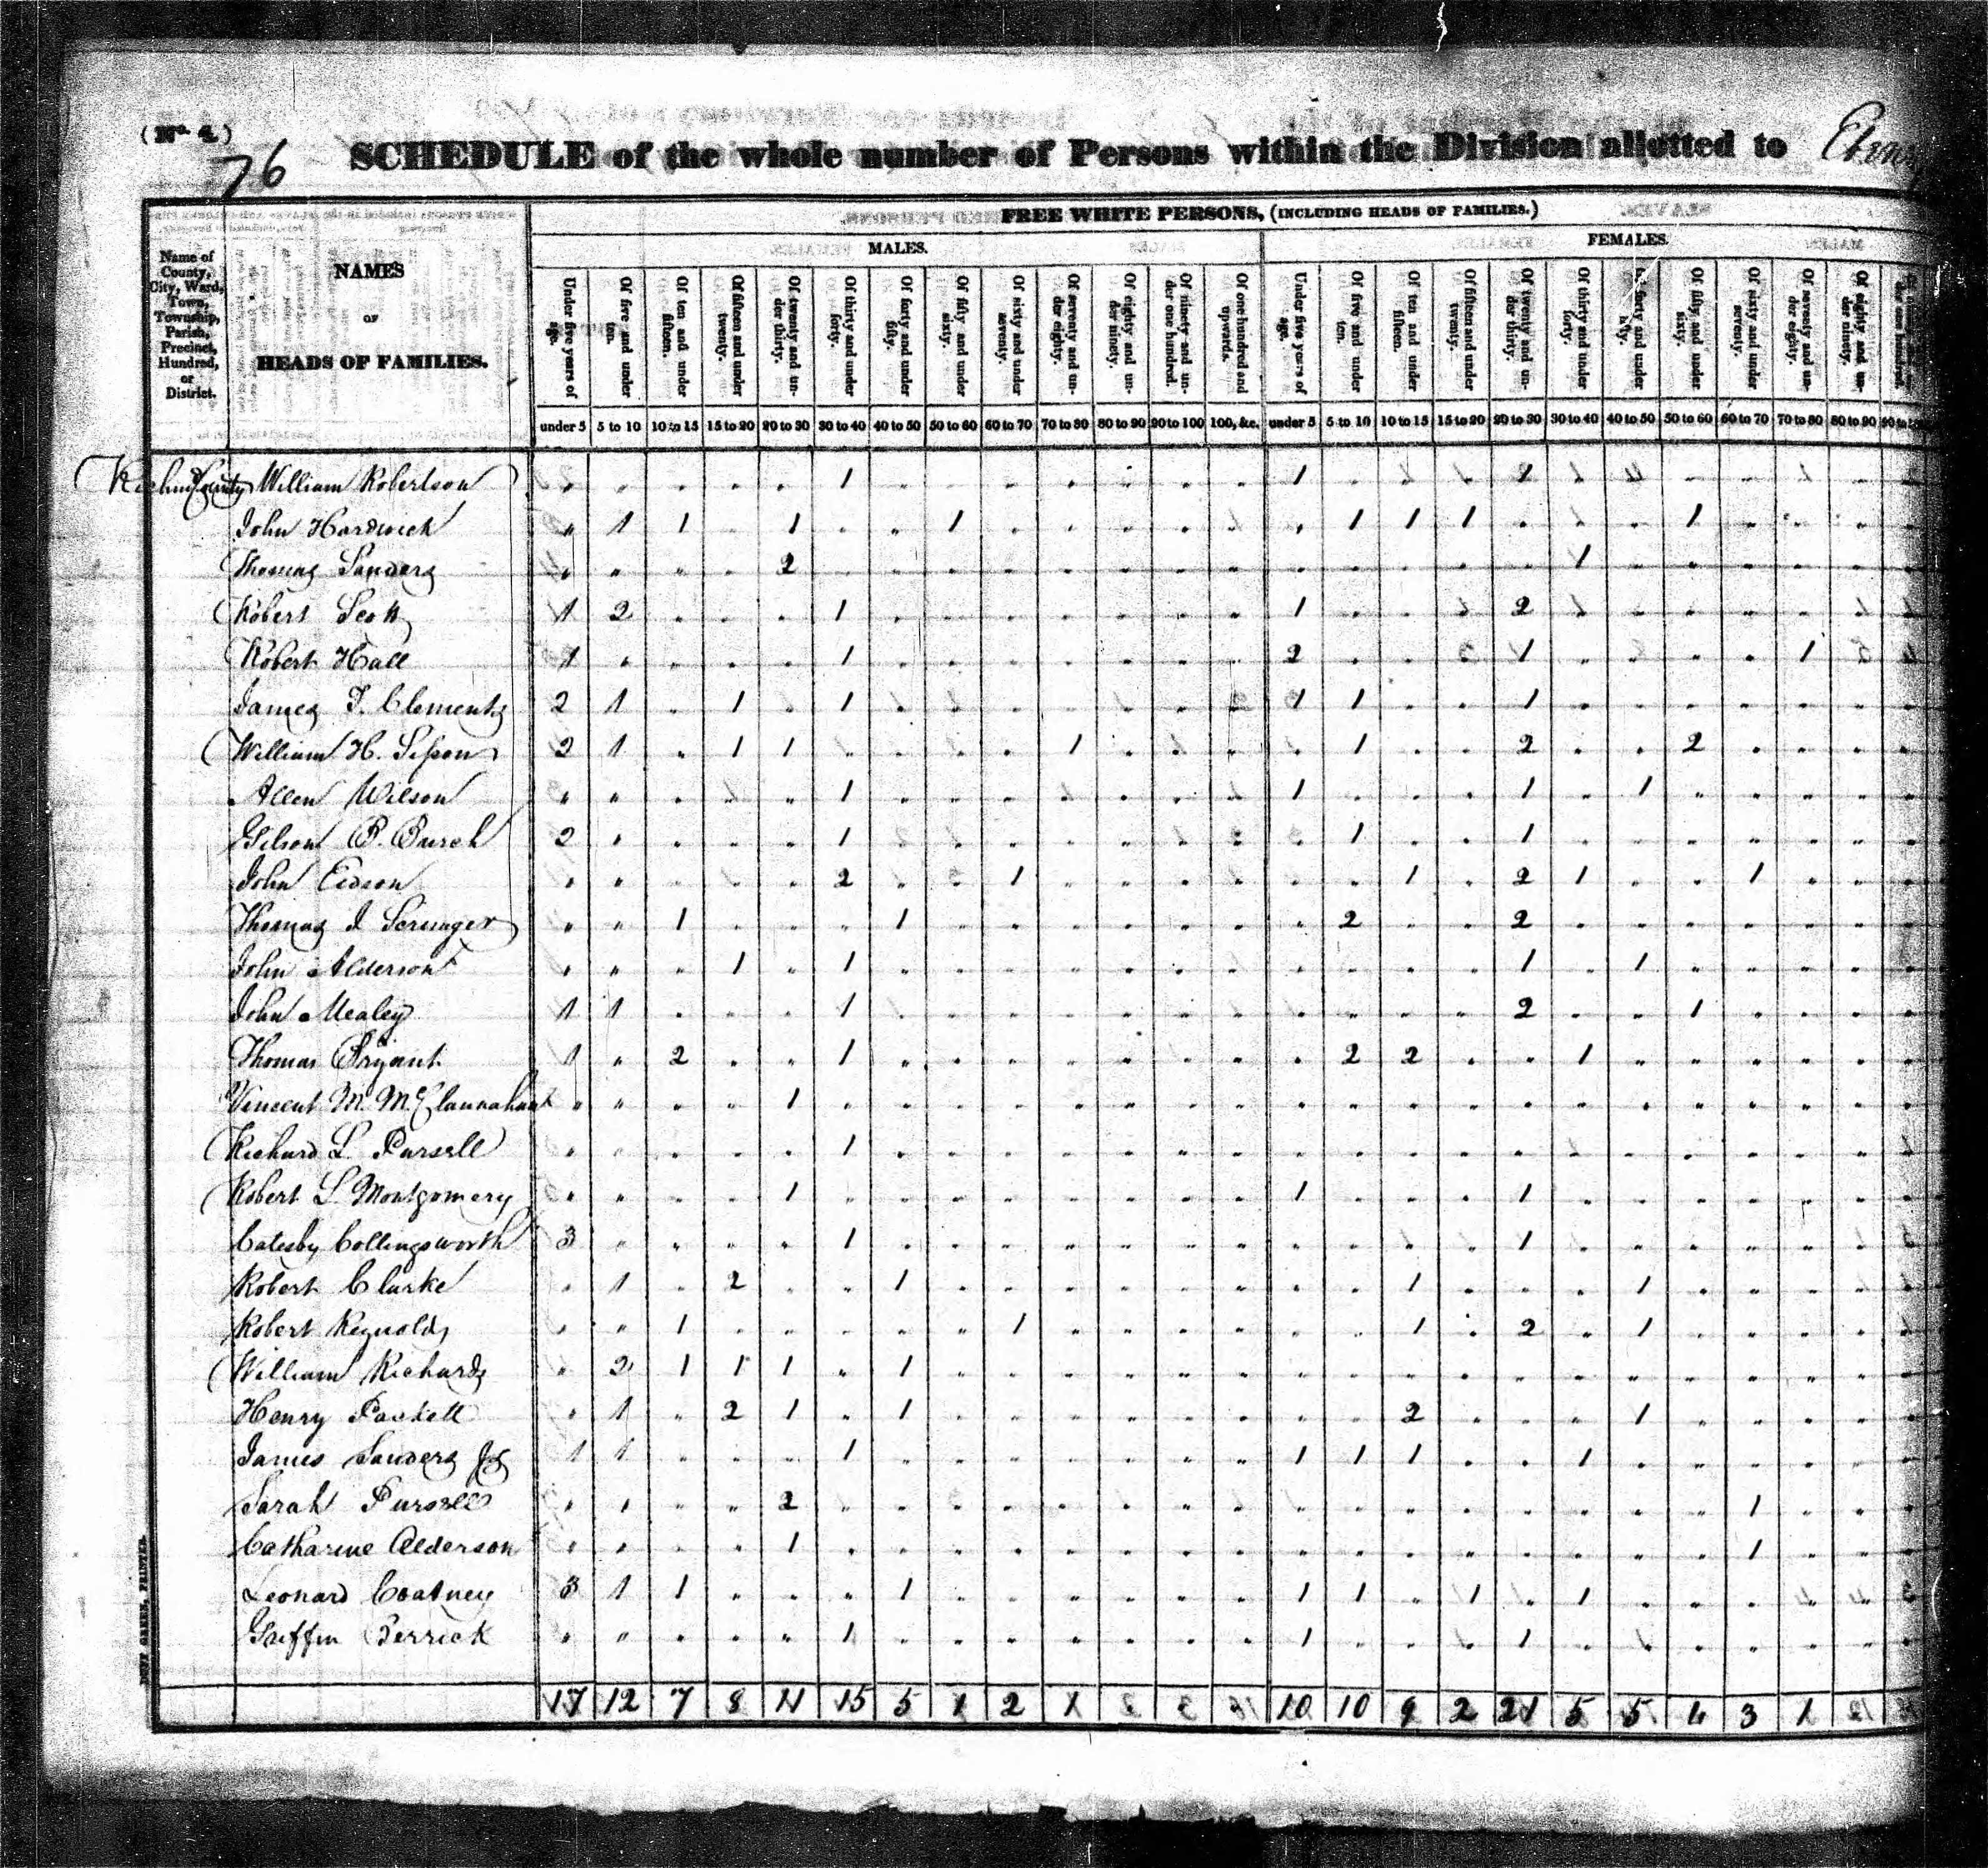 (No. 4.)
76
SCHEDULE of the whole number of Persons within the Division allotted to
FREE WHITE PERSONS, (INCLUDING HEADS OF FAMILIES.)
MALES. FEMALES.
Name of County, City, Ward, Town, Township, Parish, Precinct, Hundred, or District.
NAMES
OF
HEADS OF FAMILIES.
Under five years of age. Of five and under ten. Of ten and under fifteen. Of fifteen and under twenty. Of twenty and under thirty. Of thirty and under forty. Of forty and under fifty. Of fifty and under sixty. Of sixty and under seventy. Of seventy and under eighty. Of eighty and under ninety. Of ninety and under one hundred. Of one hundred and upwards. Under five years of age. Of five and under ten. Of ten and under fifteen. Of fifteen and under twenty. Of twenty and under thirty. Of thirty and under forty. Of forty and under fifty. Of fifty and under sixty. Of sixty and under seventy. Of seventy and under eighty. Of eighty and under ninety.
under 5 5 to 10 10 to 15 15 to 20 20 to 30 30 to 40 40 to 50 50 to 60 60 to 70 70 to 80 80 to 90 90 to 100 100, &c. under 5 5 to 10 10 to 15 15 to 20 20 to 30 30 to 40 40 to 50 50 to 60 60 to 70 70 to 80 80 to 90
County William Robertson 1 1 1
John Hardwick 1 1 1 1 1 1 1 1
Thomas Sanders 2 1
Robert Scott 1 2 1 1 2
Robert Hall 1 1 2 1 1
James T. Clements 2 1 1 1 1 1 1
William H. Sisson 2 1 1 1 1 1 2 2
Allen Wilson 1 1 1 1
Gilson B. Burch 2 1 1 1
John Eidson 2 1 1 2 1 1
Thomas J 1 1 2 2
John Alderson 1 1 1 1
John Mealey 1 1 1 2 1
Thomas Bryant 1 2 1 2 2 1
Vincent M. McClannahan 1
Richard L. Pursell 1
Robert L. Montgomery 1 1 1
Catesby Collingsworth 3 1 1
Robert Clarke 1 2 1 1 1
Robert Reynolds 1 1 1 2 1
William Richards 2 1 1 1 1
Henry Packett 1 2 1 1 2 1
James Sanders 1 1 1 1 1 1 1
Sarah Pursell 2 1
Catharine Alderson 1 1
Leonard Coatney 3 1 1 1 1 1 1 1
Griffin Derrick 1 1 1
17 12 7 8 11 15 5 1 2 1 10 10 9 2 21 5 5 4 3 1
DUFF GREEN, PRINTER.